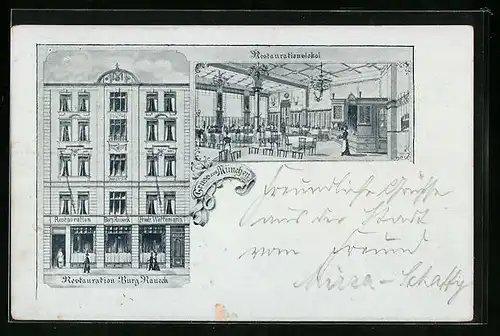 Restaurationslokal
Gruss aus München
Restauration Burg Raueck
Restauration Burg Raueck
Freundliche Grüsse
aus der Stadt
vom Freund
Mirza-Schaffy